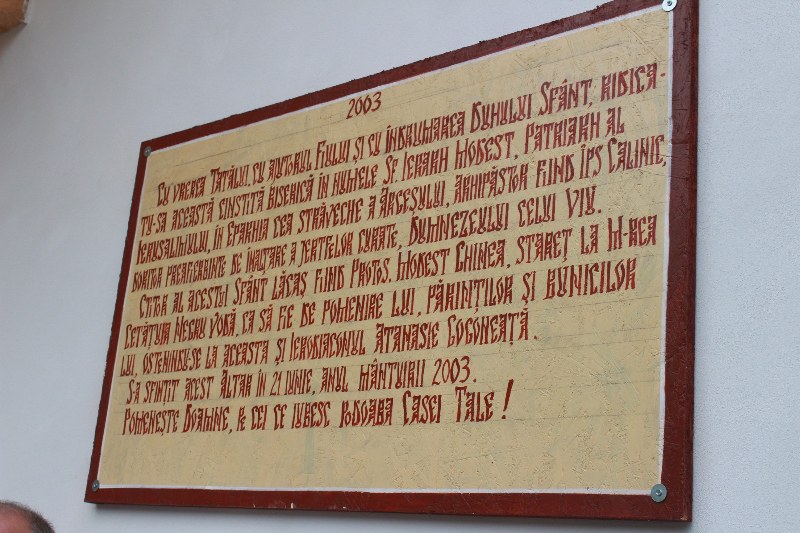 2003
Cu vrerea Tatălui, cu ajutorul Fiului și cu îndrumarea Duhului Sfânt, ridica-
tu-s-a această cinstită biserică în numele Sf Ierarh Modest, Patriarh al
Ierusalimului, în Eparhia cea străveche a Argeșului, arhipăstor fiind ÎPS Calinic,
doritor preafierbinte de înălțare a jertfelor curate, Dumnezeului celui Viu.
Ctitor al acestui Sfânt lăcaș fiind Protos. Modest Ghinea, stareț la M-rea
Cetățuia Negru Vodă, ca să fie de pomenire lui, părinților și bunicilor
lui, ostenindu-se la aceasta și Ierodiaconul Atanasie Gogoneață.
S-a sfințit acest Altar în 21 iunie, anul mântuirii 2003.
Pomenește Doamne, pe cei ce iubesc podoaba Casei Tale!